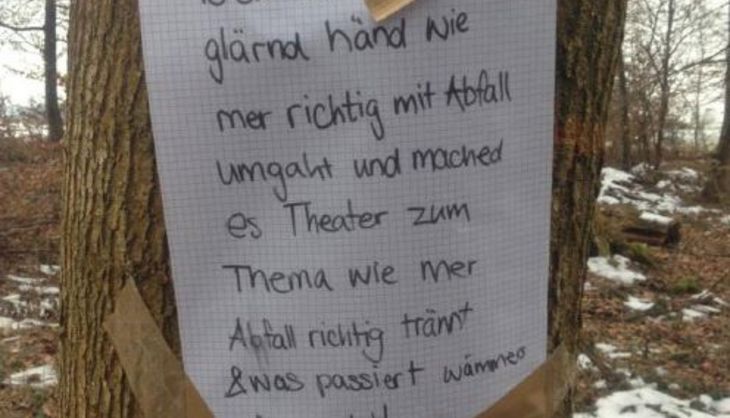 glärnd händ wie
mer richtig mit Abfall
umgaht und mached
es Theater zum
Thema wie mer
Abfall richtig trännt
&was passiert wämmer